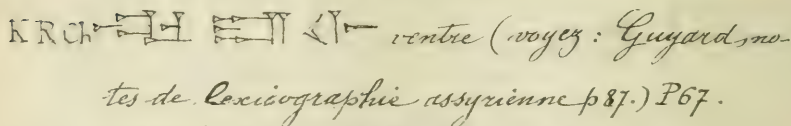 KRCh ventre (voyez : Guyard, no-
tes de lexicographie assyrienne p 87.) P67.